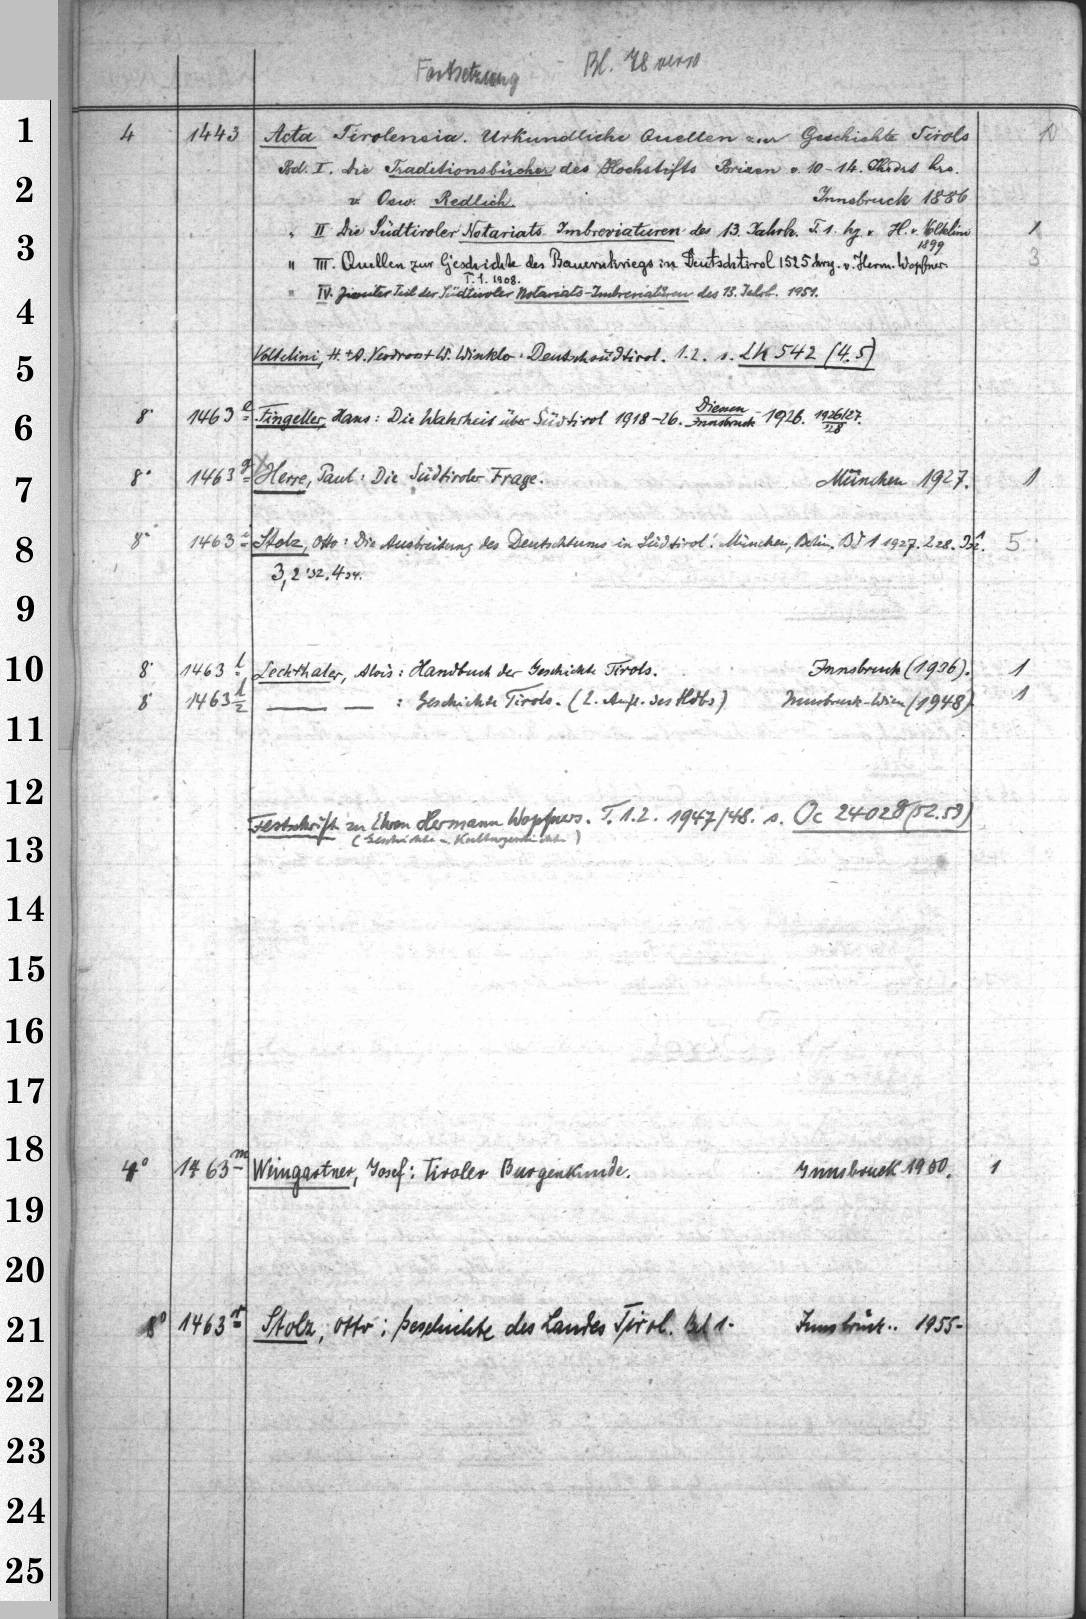 Fortsetzung Bl. 78 verso
1
4 1443 Acta Tirolensia. Urkundliche Quellen zur Geschichte Tirols 10
2
Bd. I. Die Traditionsbücher des Hochstifts Brixen v. 10-14. hrs.
v. Osw. Redlich. Innsbruck 1886
3
" II Die Südtiroler Notariats Imbreviaturen des 13. Jahrh. T. 1. hg v. H. v. Voltelini 1899 1
" III. Quellen zur Geschichte des Bauernkriegs in Deutschtirol 1525 hrg. v. Herm. Wopfner. T. 1. 1908. 3
4
" IV. Zweiter Teil der Südtiroler Notariats-Imbreviaturen des 13. Jahrh. 1951.
5
Voltelini, H. + W. Deutschsüdtirol. 1.2. s. Lh 542 (4.5)
6
8° 1463 e Fingeller, Hans: Die Wahrheit über Südtirol 1918-26. Innsbruck 1926. 1926/27. 28
7
8° 1463 g Herre, Paul: Die Südtiroler Frage. München 1927. 1
8
8° 1463 i Stolz, Otto: Die Ausbreitung des Deutschtums in Südtirol. München, Berlin. Bd 1 1927. 2 28. 5
3,2 '32. 4 34.
9
10
8° 1463 l Lechthaler, Alois: Handbuch der Geschichte Tirols. Innsbruck (1936). 1
8° 1463 l/2 —— — : Geschichte Tirols. (2. Aufl. des Hdbs) Innsbruck-Wien (1948) 1
11
12
Festschrift zu Ehren Hermann Wopfners. T. 1.2. 1947/48. s. Oc 24028 (52.53)
13
(Geschichte u. Kulturgeschichte)
14
15
16
17
18
4° 1463 m Weingartner, Josef: Tiroler Burgenkunde. Innsbruck 1950. 1
19
20
21
8° 1463 Stolz, Otto: Geschichte des Landes Tirol. Bd 1. Innsbruck.. 1955-
22
23
24
25